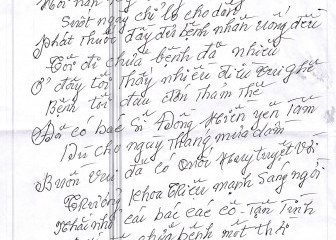 Suốt ngày chỉ lo cho dân
Phát thuốc đầy đủ bệnh nhân uống đều
Tôi đi chữa bệnh đã nhiều
Ở đây tôi thấy nhiều điều vui ghê
Bệnh tôi đau đớn thảm thê
Đã có bác sĩ Đồng Hiền yên tâm
Dù cho ngày tháng mưa dầm
Buồn vui đã có Quốc Huy tuyệt vời
Trưởng khoa Thiều mạnh Sáng ngời
Khải nhớ các bác các cô Tận Tình
chữa bệnh một